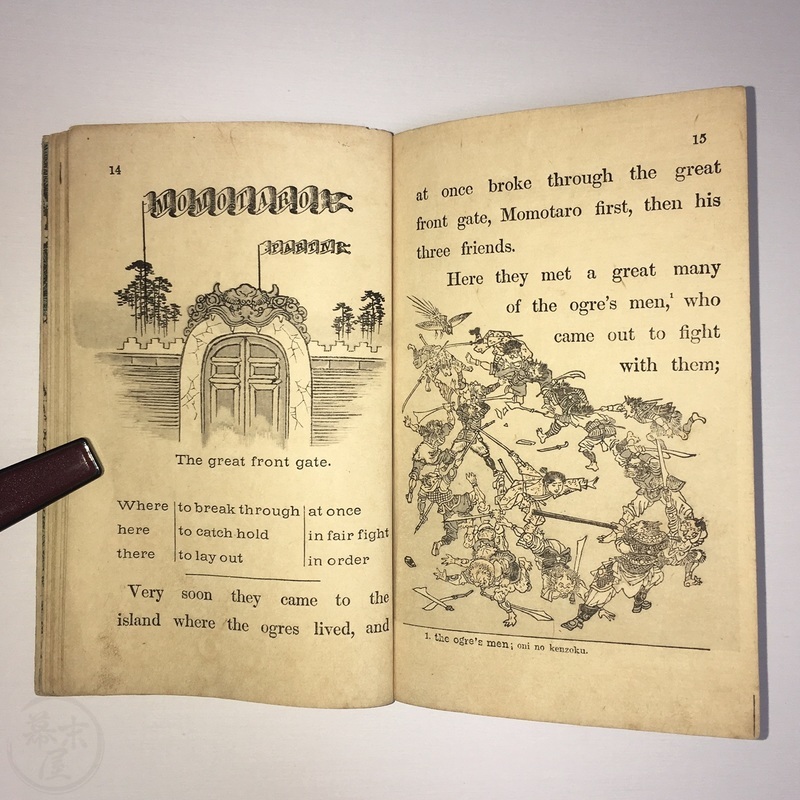 14
MOMOTARO
PART IV
The great front gate.
Where to break through at once
here to catch hold in fair fight
there to lay out in order
Very soon they came to the
island where the ogres lived, and
15
at once broke through the great
front gate, Momotaro first, then his
three friends.
Here they met a great many
of the ogre's men,¹ who
came out to fight
with them;
1. the ogre's men; oni no kenzoku.
幕末屋